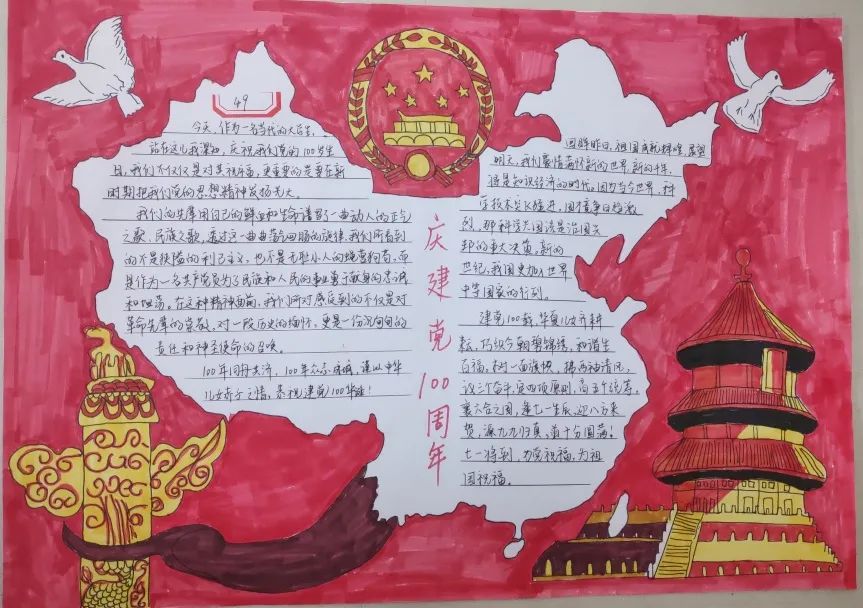 49
今天，作为一名当代的大学生，
站在这儿我深知，庆祝我们党的100岁生
日，我们不仅仅是对其祝福，更重要的是要在新
时期把我们党的思想精神发扬光大。
我们的先辈用自己的鲜血和生命谱写了一曲动人的正气
之歌、民族之歌，透过这一曲曲荡气回肠的旋律，我们所看到
的不是狭隘的利己主义，也不是无耻小人的蝇营狗苟，而
是作为一名共产党员为了民族和人民的事业勇于献身的忠诚
和坦荡。在这种精神面前，我们所对感受到的不仅是对
革命先辈的崇敬，对一段历史的缅怀，更是一份沉甸甸的
责任和神圣使命的召唤。
100年同舟共济，100年众志成城，谨以中华
儿女赤子之情，恭祝建党100华诞！
庆建党100周年
回眸昨日，祖国成就辉煌，展望
明天，我们豪情满怀新的世界，新的千年，
将是知识经济的时代。因为当今世界，科
学技术突飞猛进，国际竞争日趋激
烈，那科学兴国该是治国兴
邦的重大决策。新的
世纪，我国更加入世界
中等国家的行列。
建党100载，华夏儿女齐耕
耘，巧织今朝剪锦绣，和谐生
百福，树一面旗帜，拂两袖清风，
议三个奋斗，定四项原则，高五个统筹，
聚六合之圆，逢七一生辰，迎八方来
贺，添九九归真，首十分圆满！
七一将到，为党祝福，为祖
国祝福。